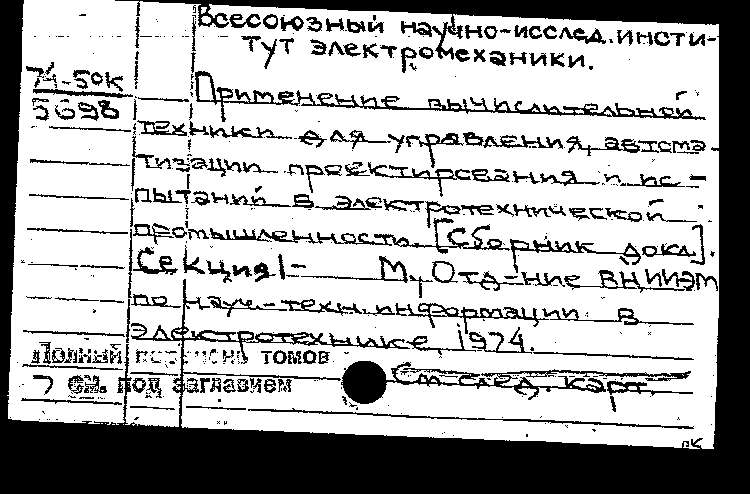 Всесоюзный научно-исслед. инсти-
тут электромеханики.
74-50к
5698
Применение вычислительной
техники для управления, автома-
тизации проектирования и ис-
пытаний в электротехнической
промышленности. [Сборник докл.].
Секция 1- М., Отд-ние ВНИИЭМ
по науч.-техн. информации в
электротехнике, 1974.
Полный перечень томов
см. под заглавием
См. след. карт.